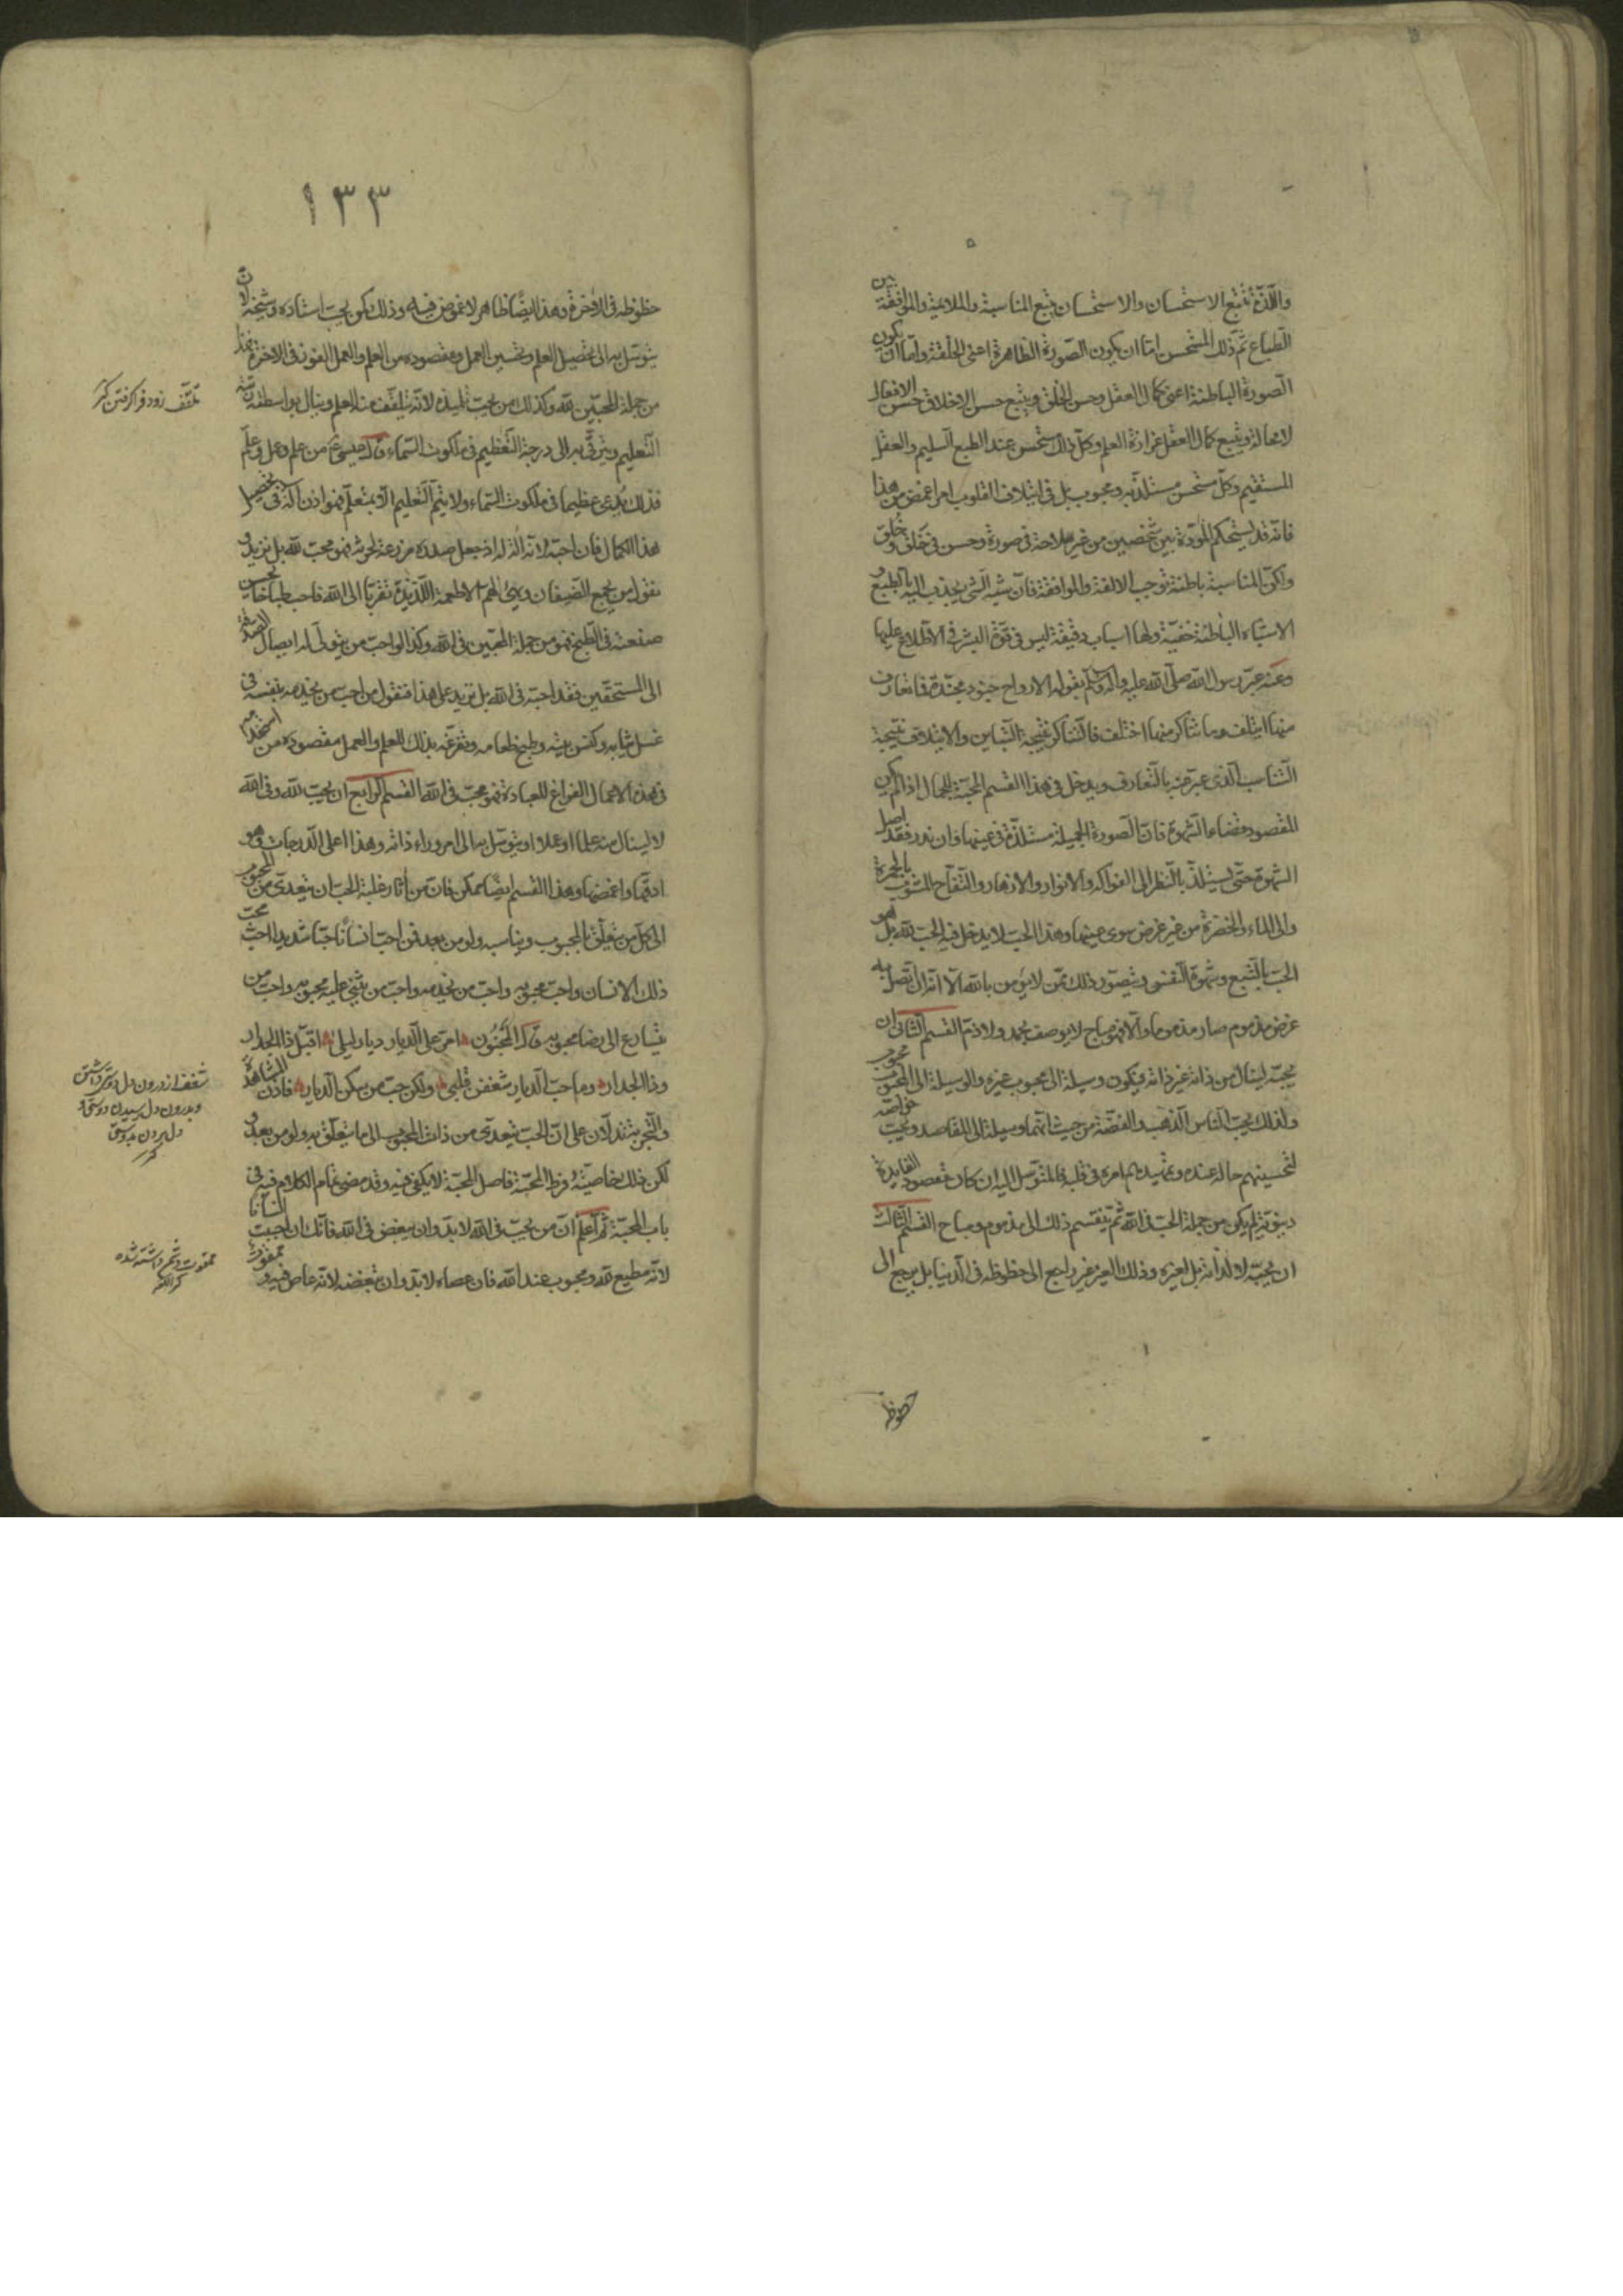 واللذة تتبع الاستحسان والاستحسان يتبع المناسبة والملايمة والموافقة بين
الطباع ثم ذلك المستحسن اما ان يكون الصورة الظاهرة اعنى الخلقة واما ان يكون
الصورة الباطنة اعنى كمال العقل وحسن الخلق ويتبع حسن الاخلاق حسن الافعال
لا محالة ويتبع كمال العقل غزارة العلم وكل ذلك مستحسن عند الطبع السليم والعقل
المستقيم وكل مستحسن مستلذ به ومحبوب بل فى ايتلاف القلوب امر اغمض من هذا
فانه قد يستحكم المودة بين شخصين من غير ملاحة فى صورة وحسن فى خَلق وخُلق
ولكن المناسبة باطنة توجب الالفة والموافقة فان شبه الشئ ينجذب اليه بالطبع و
الاشباه الباطنة خفية ولها اسباب دقيقة ليس فى قوة البشر فى الاطلاع عليها
وعنه عبر رسول الله صلى الله عليه واله وسلم بقوله الارواح جنود مجندة فما تعارف
منها ايتلف وما تناكر منها اختلف فالتناكر نتيجة التباين والايتلاف نتيجة
التناسب الذى عبر عنه بالتعارف ويدخل فى هذا القسم المحبة للجمال اذا لم يكن
المقصود قضاء الشهوة فان الصورة الجميلة مستلذة فى عينها وان قدر فقد اصل
الشهوة حتى يستلذ بالنظر الى الفواكه والانوار والازهار والتفاح المشوب بالحمرة
والى الماء والخضرة من غير غرض سوى عينها وهذا الحب لا يدخل فيه الحب لله بل هو
الحب بالطبع وشهوة النفس ويتصور ذلك ممن لا يؤمن بالله الا انه ان اتصل به
غرض مذموم صار مذموما والا فهو مباح لا يوصف بحمد ولا ذم القسم الثانى ان
يحبه لينال من ذاته غير ذاته فيكون وسيلة الى محبوب غيره والوسيلة الى المحبوب محبوب
ولذلك يحب الناس الذهب والفضة من حيث انهما وسيلة الى المقاصد ويحب خواصه
لتحسينهم حاله عنده وتمهيدهم امره فى قلبه فالمتوسل اليه ان كان مقصود الفايدة
دنيوية لم يكن من جملة الحب فى الله ثم ينقسم ذلك الى مذموم ومباح القسم الثالث
ان يحبه لا لذاته بل لغيره وذلك الغير غير راجع الى حظوظه فى الدنيا بل يرجع الى
حظوظ
١٣٣
حظوظه فى الاخرة وهذا ايضا ظاهر لا غموض فيه وذلك كمن يحب استاده وشيخه لان
يتوسل به الى تحصيل العلم وتحسين العمل ومقصوده من العلم والعمل الفوز فى الاخرة فهذا
من جملة المحبين لله وكذلك من يحب تلميذه لانه يتلقف منه العلم وينال بواسطته رتبة
التعليم ويترقى به الى درجة التعظيم فى ملكوت السماء قال عيسى ع من علم وعمل وعلم
فذلك يدعى عظيما فى ملكوت السماء ولا يتم التعليم الا بمتعلم فهو اذن آلة فى تحصيل
هذا الكمال فان احبه لانه آلة له اذ جعل صدره مزرعة لحرثه فهو محب لله بل نزيد و
نقول من يجمع الضيفان ويهيئ لهم الاطعمة اللذيذة تقربا الى الله فاحب طباخا يحسن
صنعته فى الطبخ فهو من جملة المحبين فى الله وكذا لو احب من يتولى له ايصال الصدقة
الى المستحقين فقد احبه فى الله بل نزيد على هذا فنقول من احب من يخدمه بنفسه فى
غسل ثيابه وكنس بيته وطبخ طعامه ويفرغه بذلك للعلم والعمل مقصوده من استخدامه
فى هذه الاعمال الفراغ للعبادة فهو محب فى الله القسم الرابع ان يحب لله وفى الله
لا لينال منه علما او عملا او يتوسل به الى امر وراء ذاته وهذا اعلى الدرجات وهو
ادقها واغمضها وهذا القسم ايضا ممكن فان من آثار غلبة الحب ان يتعدى من المحبوب
الى كل من يتعلق بالمحبوب ويناسبه ولو من بعد فمن احب انسانا حبا شديدا احب محب
ذلك الانسان واحب محبوبه واحب من يخدمه واحب من يثنى عليه محبوبه واحب من
يتسارع الى رضا محبوبه قال المجنون امر على الديار ديار ليلى اقبل ذا الجدار
وذا الجدار وما حب الديار شغفن قلبى ولكن حب من سكن الديار فاذن المشاهدة
والتجربة تدلان على ان الحب يتعدى من ذات المحبوب الى ما يتعلق به ولو من بعد و
لكن ذلك بخاصية فرط المحبة فاصل المحبة لا يكفى فيه وقد مضى تمام الكلام فيه فى
باب المحبة ثم اعلم ان من يحب فى الله لا بد وان يبغض فى الله فانك ان احببت انسانا
لانه مطيع لله ومحبوب عند الله فان عصاه لا بد وان تبغضه لانه عاص فيه و ممقوت
تلقف زود فرا گرفتن كنز
شغف از درون دل دوستى داشتن
وبدرون دل رسيدن دوستى و
دل بردن بدوستى
كنز
ممقوت دشمن داشته شده
كنز اللغه